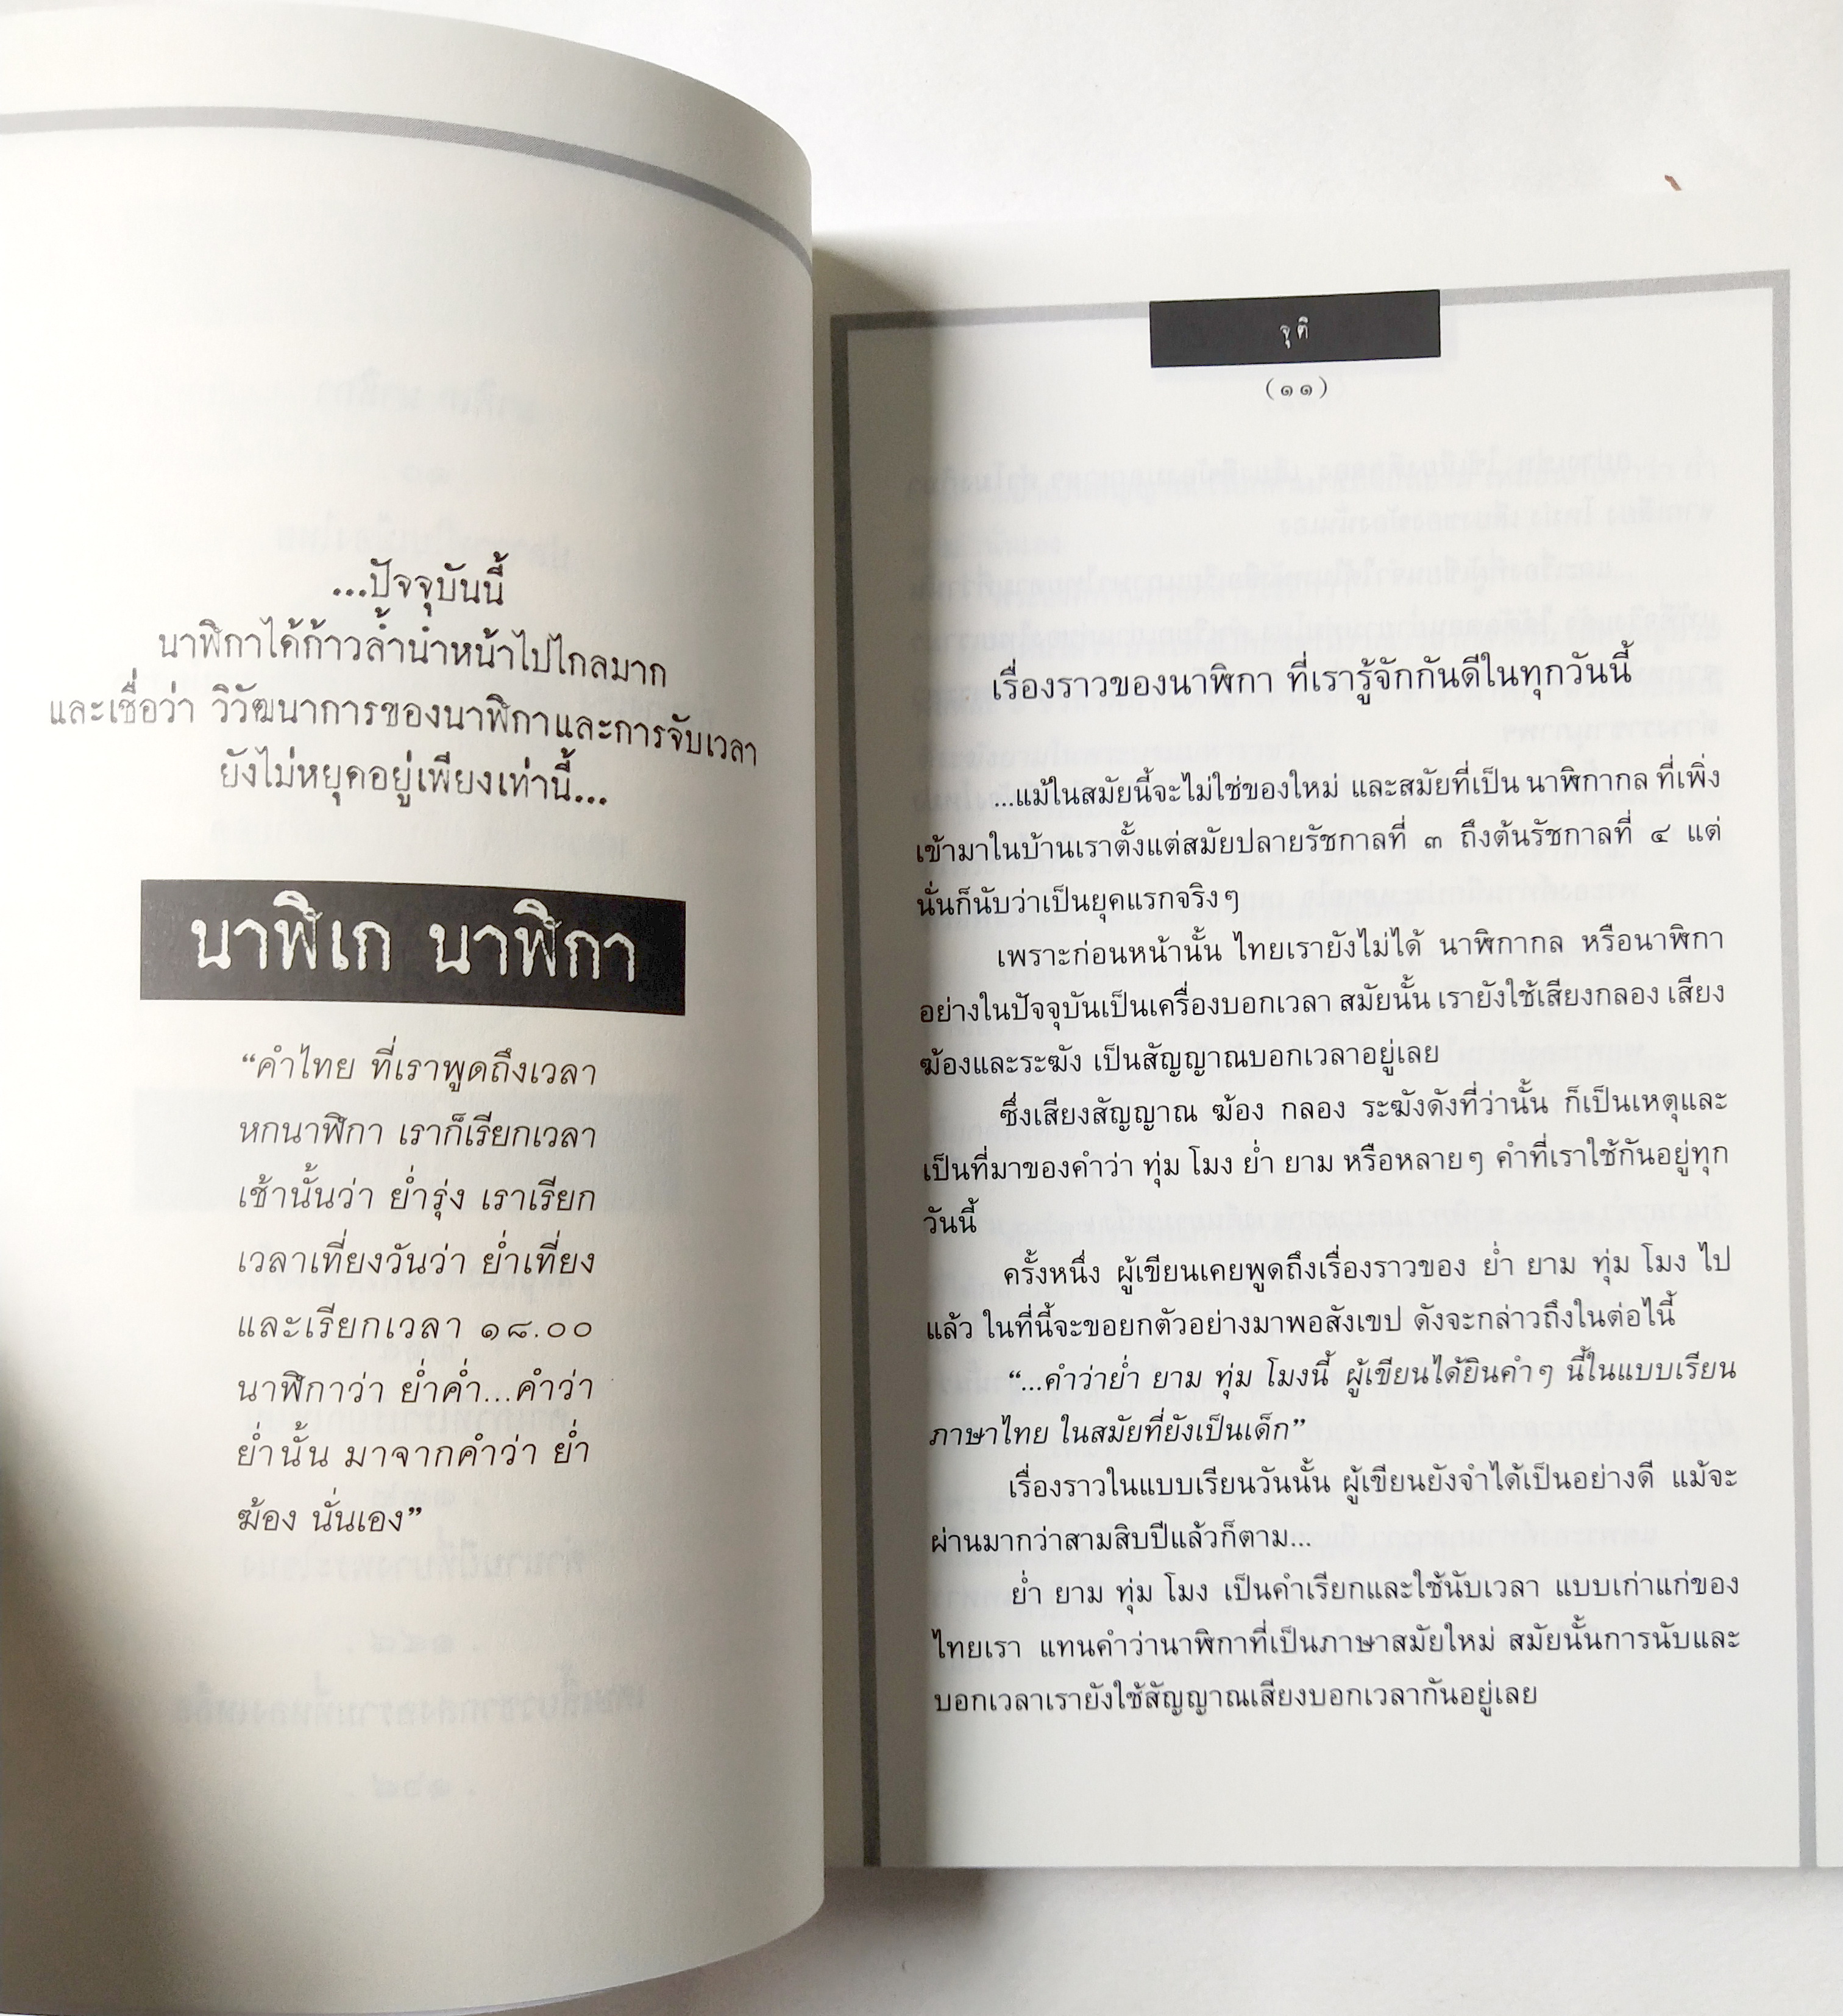 ...ปัจจุบันนี้
นาฬิกาได้ก้าวล้ำนำหน้าไปไกลมาก
และเชื่อว่า วิวัฒนาการของนาฬิกาและการจับเวลา
ยังไม่หยุดอยู่เพียงเท่านี้...
นาฬิเก นาฬิกา
“คำไทย ที่เราพูดถึงเวลา
หกนาฬิกา เราก็เรียกเวลา
เช้านั้นว่า ย่ำรุ่ง เราเรียก
เวลาเที่ยงวันว่า ย่ำเที่ยง
และเรียกเวลา ๑๘.๐๐
นาฬิกาว่า ย่ำค่ำ...คำว่า
ย่ำนั้น มาจากคำว่า ย่ำ
ฆ้อง นั่นเอง”
จุติ
(๑๑)
เรื่องราวของนาฬิกา ที่เรารู้จักกันดีในทุกวันนี้
...แม้ในสมัยนี้จะไม่ใช่ของใหม่ และสมัยที่เป็น นาฬิกากล ที่เพิ่ง
เข้ามาในบ้านเราตั้งแต่สมัยปลายรัชกาลที่ ๓ ถึงต้นรัชกาลที่ ๔ แต่
นั่นก็นับว่าเป็นยุคแรกจริงๆ
เพราะก่อนหน้านั้น ไทยเรายังไม่ได้ นาฬิกากล หรือนาฬิกา
อย่างในปัจจุบันเป็นเครื่องบอกเวลา สมัยนั้น เรายังใช้เสียงกลอง เสียง
ฆ้องและระฆัง เป็นสัญญาณบอกเวลาอยู่เลย
ซึ่งเสียงสัญญาณ ฆ้อง กลอง ระฆังดังที่ว่านั้น ก็เป็นเหตุและ
เป็นที่มาของคำว่า ทุ่ม โมง ย่ำ ยาม หรือหลายๆ คำที่เราใช้กันอยู่ทุก
วันนี้
ครั้งหนึ่ง ผู้เขียนเคยพูดถึงเรื่องราวของ ย่ำ ยาม ทุ่ม โมง ไป
แล้ว ในที่นี้จะขอยกตัวอย่างมาพอสังเขป ดังจะกล่าวถึงในต่อไนี้
“...คำว่าย่ำ ยาม ทุ่ม โมงนี้ ผู้เขียนได้ยินคำๆ นี้ในแบบเรียน
ภาษาไทย ในสมัยที่ยังเป็นเด็ก”
เรื่องราวในแบบเรียนวันนั้น ผู้เขียนยังจำได้เป็นอย่างดี แม้จะ
ผ่านมากว่าสามสิบปีแล้วก็ตาม...
ย่ำ ยาม ทุ่ม โมง เป็นคำเรียกและใช้นับเวลา แบบเก่าแก่ของ
ไทยเรา แทนคำว่านาฬิกาที่เป็นภาษาสมัยใหม่ สมัยนั้นการนับและ
บอกเวลาเรายังใช้สัญญาณเสียงบอกเวลากันอยู่เลย